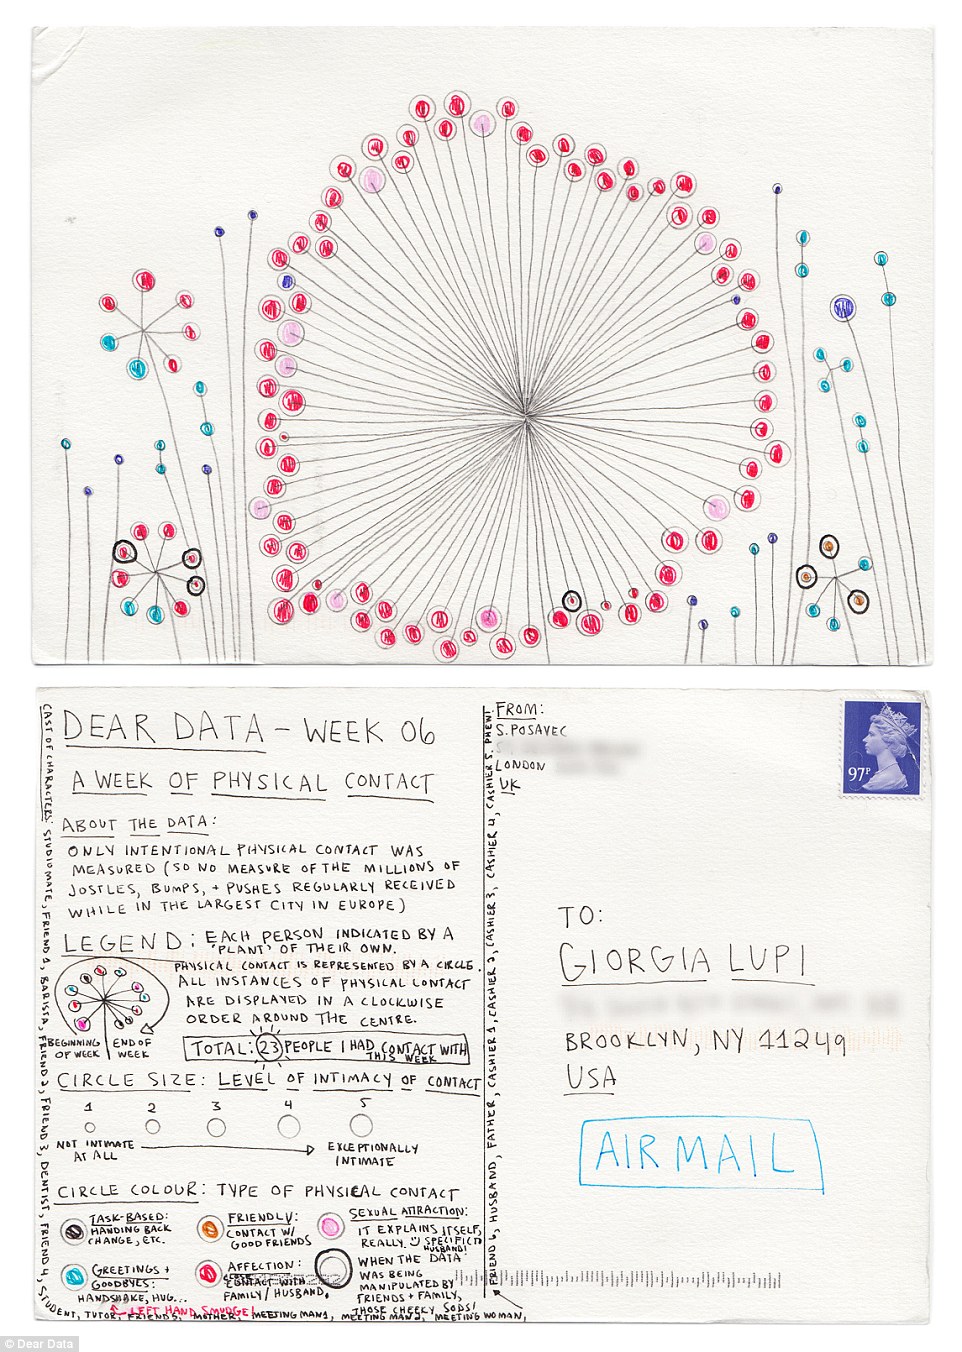 DEAR DATA - WEEK 06
A WEEK OF PHYSICAL CONTACT
ABOUT THE DATA:
ONLY INTENTIONAL PHYSICAL CONTACT WAS
MEASURED (SO NO MEASURE OF THE MILLIONS OF
JOSTLES, BUMPS, + PUSHES REGULARLY RECEIVED
WHILE IN THE LARGEST CITY IN EUROPE)
LEGEND: EACH PERSON INDICATED BY A
'PLANT' OF THEIR OWN.
PHYSICAL CONTACT IS REPRESENTED BY A CIRCLE.
ALL INSTANCES OF PHYSICAL CONTACT
ARE DISPLAYED IN A CLOCKWISE
ORDER AROUND THE CENTRE.
BEGINNING OF WEEK
END OF WEEK
TOTAL: 23 PEOPLE I HAD CONTACT WITH
THIS WEEK
CIRCLE SIZE: LEVEL OF INTIMACY OF CONTACT
1 2 3 4 5
NOT INTIMATE AT ALL
EXCEPTIONALLY INTIMATE
CIRCLE COLOUR: TYPE OF PHYSICAL CONTACT
TASK-BASED:
HANDING BACK
CHANGE, ETC.
FRIENDLY:
CONTACT W/
GOOD FRIENDS
SEXUAL ATTRACTION:
IT EXPLAINS ITSELF,
REALLY. SPECIFIC TO
HUSBAND!
GREETINGS +
GOODBYES:
HANDSHAKE, HUG...
AFFECTION:
CONTACT WITH
FAMILY/HUSBAND.
WHEN THE DATA
WAS BEING
MANIPULATED BY
FRIENDS + FAMILY,
THOSE CHEEKY SODS!
LEFT HAND SMUDGE!
CAST OF CHARACTERS: STUDIO MATE, FRIEND 1, BARISTA, FRIEND 2, FRIEND 3, DENTIST, FRIEND 4,
STUDENT, TUTOR, FRIEND 5, MOTHER, MEETING MAN 1, MEETING MAN 2, MEETING WOMAN,
FRIEND 6, HUSBAND, FATHER, CASHIER 1, CASHIER 2, CASHIER 3, CASHIER 4, CASHIER 5,
FROM:
S. POSAVEC
LONDON
UK
97P
TO:
GIORGIA LUPI
BROOKLYN, NY 11249
USA
AIR MAIL
© Dear Data